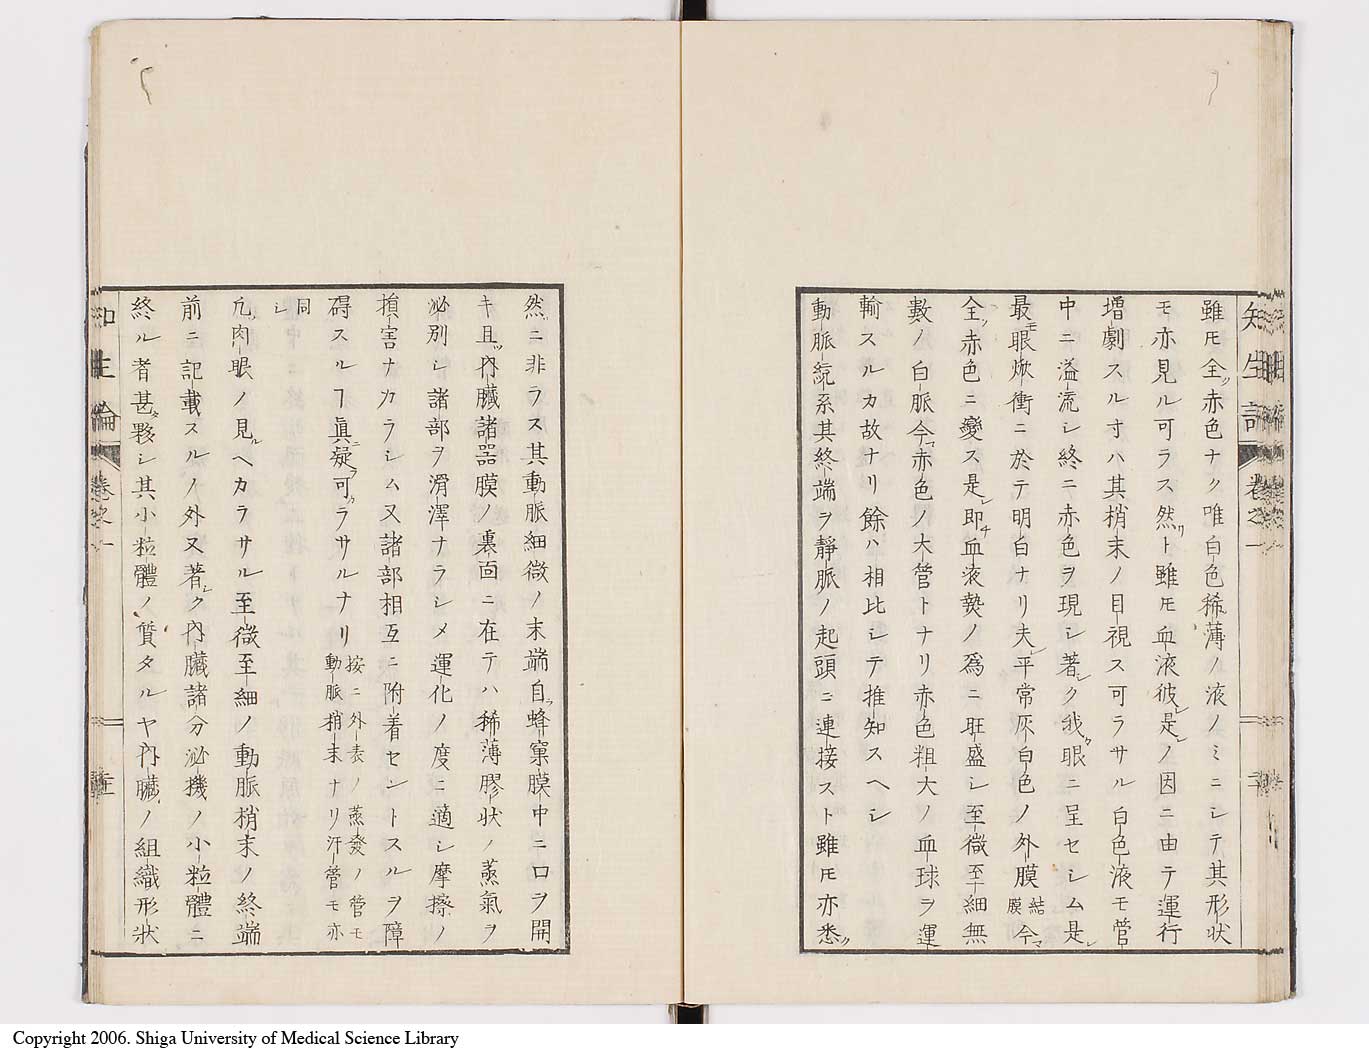 知生論 卷之一
雖𪜈全ク赤色ナク唯白色稀薄ノ液ノミニシテ其形狀
モ亦見ル可ラス然リト雖𪜈血液彼レ是レノ因ニ由テ運行
增劇スル寸ハ其梢末ノ目視ス可ラサル白色液モ管
中ニ溢流シ終ニ赤色ヲ現シ著シク我カ眼ニ呈セシム是レ
最モ眼焮衝ニ於テ明白ナリ夫レ平常灰白色ノ外膜結膜今マ
全ク赤色ニ變ス是レ即チ血液㷀ノ爲ニ旺盛シ至微至細無
數ノ白脈今マ赤色ノ大管トナリ赤色粗大ノ血球ヲ運
輸スルカ故ナリ餘ハ相比シテ推知スヘシ
動脈統系其終端ヲ靜脈ノ起頭ニ連接スト雖𪜈亦悉ク
然ニ非ラス其動脈細微ノ末端自ラ蜂窠膜中ニ口ヲ開
キ且ツ內臟諸器膜ノ裏面ニ在テハ稀薄膠狀ノ蒸氣ヲ
泌別シ諸部ヲ滑澤ナラシメ運化ノ度ニ適シ摩擦ノ
損害ナカラシム又諸部相互ニ附着セントスルヲ障
碍スルヿ眞ニ疑フ可クラサルナリ按ニ外表ノ蒸發ノ管モ動脈梢末ナリ汗管モ亦
同シ
凡ソ肉眼ノ見ルヘカラサル至微至細ノ動脈梢末ノ終端
前ニ記載スルノ外又著シク內臟諸分泌機ノ小粒體ニ
終ル者甚タ夥シ其小粒體ノ質タルヤ內臟ノ組織形狀
知生論 卷之一
Copyright 2006. Shiga University of Medical Science Library